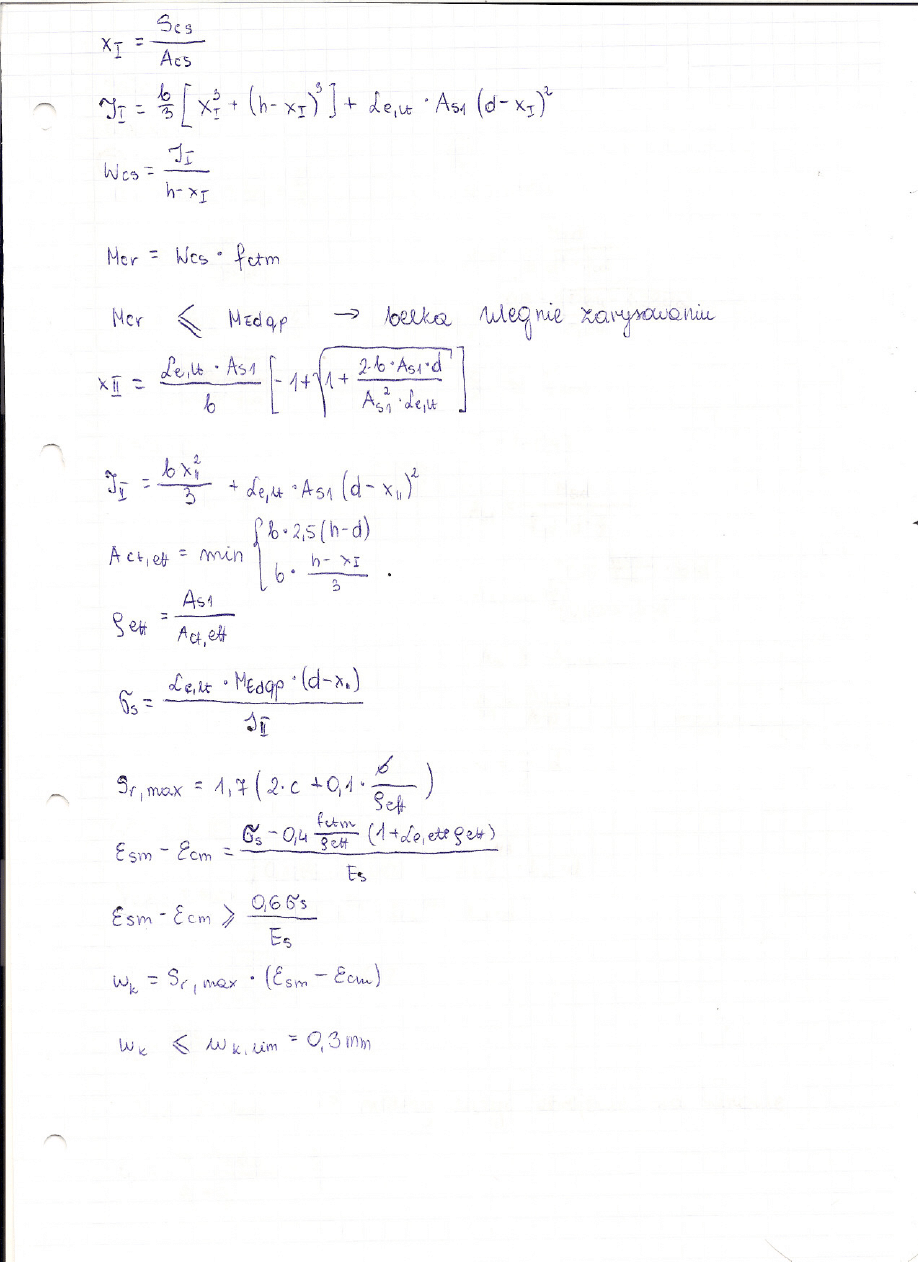 x_I = Scs / Acs
J_I = b/3 [x_I^3 + (h-x_I)^3] + αe,lt · As1 (d-x_I)^2
Wcs = J_I / h-x_I
Mcr = Wcs · fctm
Mcr ⩽ MEdqp → belka ulegnie zarysowaniu
x_II = αe,lt · As1 / b [-1+√(1 + 2·b·As1·d / As1^2 · αe,lt)]
J_II = b x_II^2 / 3 + αe,lt · As1 (d-x_II)^2
Act,eff = min { b·2,5(h-d)
b · h-x_I / 3 .
ρeff = As1 / Act,eff
σs = αe,lt · MEdqp · (d-x_II) / J_II
Sr,max = 1,7 (2·c + 0,1 · ϕ / ρeff)
εsm - εcm = σs - 0,4 fctm/ρeff (1+αe,eff ρeff) / Es
εsm - εcm ⩾ 0,6 σs / Es
wk = Sr,max · (εsm - εcm)
wk ⩽ wk,lim = 0,3mm